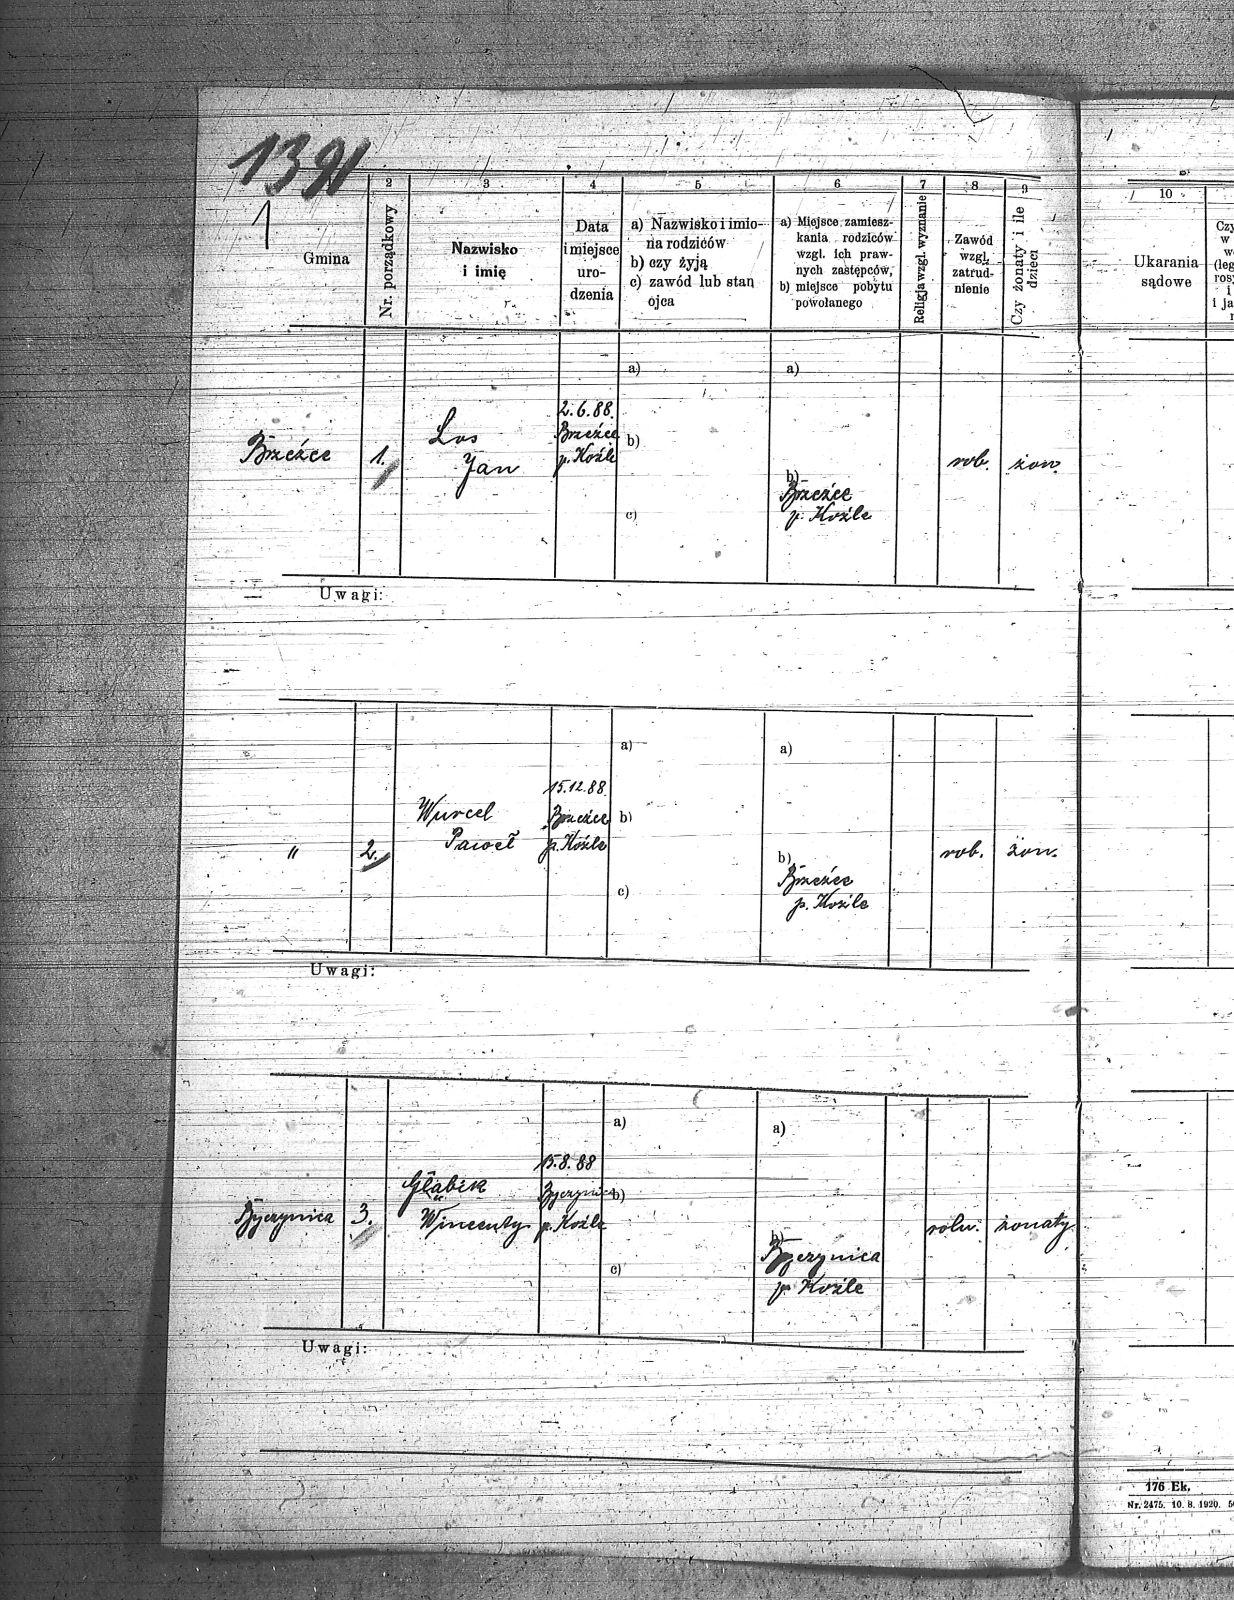 1391
1
Gmina
2
Nr. porządkowy
3
Nazwisko
i imię
4
Data
i miejsce
uro-
dzenia
5
a) Nazwisko i imio-
na rodziców
b) czy żyją
c) zawód lub stan
ojca
6
a) Miejsce zamiesz-
kania rodziców
wzgl. ich praw-
nych zastępców,
b) miejsce pobytu
powołanego
7
Religja wzgl. wyznanie
8
Zawód
wzgl.
zatrud-
nienie
9
Czy żonaty i ile
dzieci
10
Ukarania
sądowe
Brzeźce
1.
Los
Jan
2.6.88.
Brzeźce
p. Koźle
a)
b)
c)
a)
b)
Brzeźce
p. Koźle
rob.
żon.
Uwagi:
"
2.
Wurcel
Paweł
15.12.88
Brzeźce
p. Koźle
a)
b)
c)
a)
b)
Brzeźce
p. Koźle
rob.
żon.
Uwagi:
Byczynica
3.
Głąbik
Wincenty
15.8.88
Byczynica
p. Koźle
a)
b)
c)
a)
b)
Byczynica
p. Koźle
roln.
żonaty
Uwagi:
176 Ek.
Nr. 2475. 10. 8. 1920.